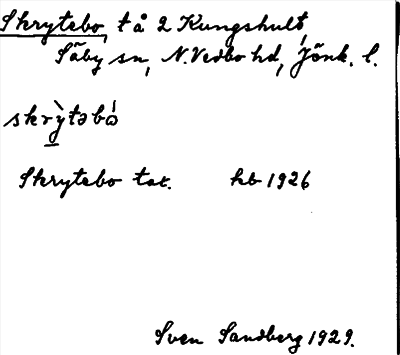 Skrytebo, t å 2 Kungshult
Säby sn, N. Vedbo hd, Jönk. l.
skrỳ̠təbó
Skrytebo tor. hb 1926
Sven Sandberg 1929.